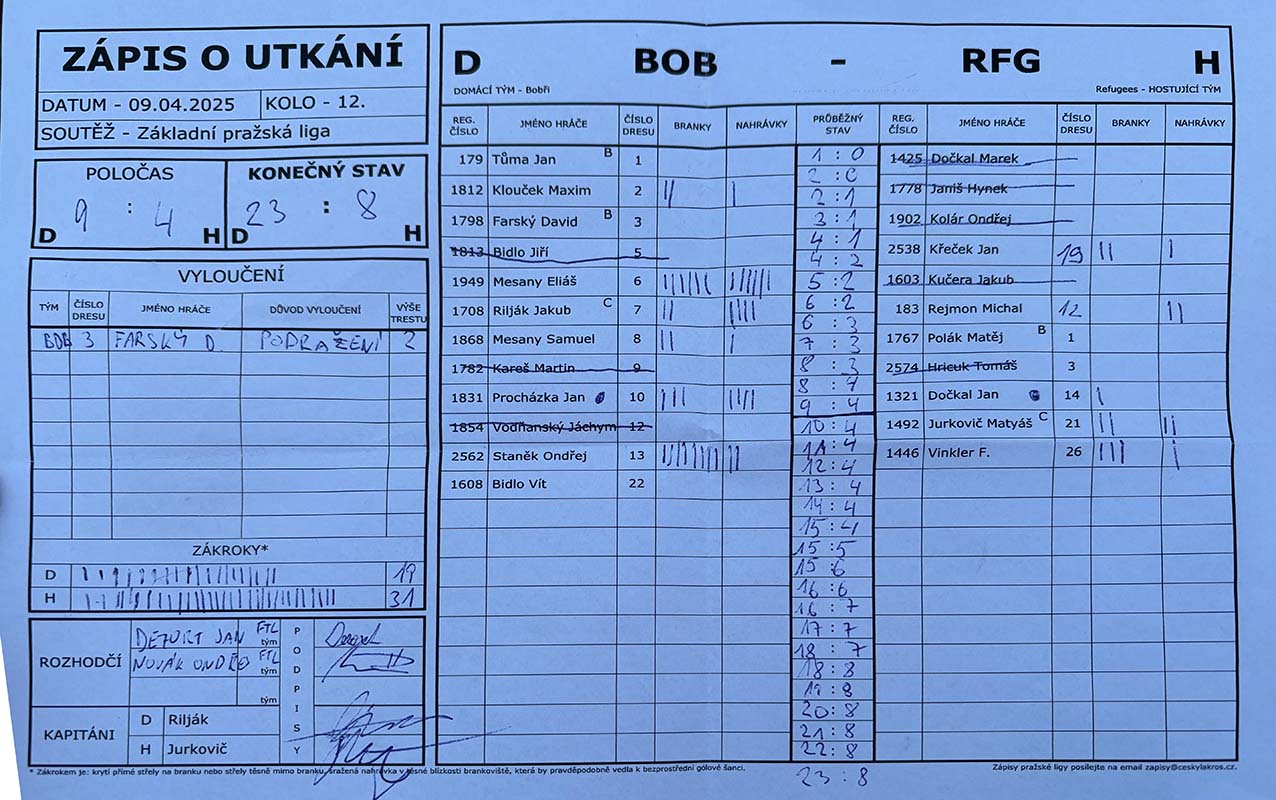 ZÁPIS O UTKÁNÍ
DATUM - 09.04.2025 KOLO - 12.
SOUTĚŽ - Základní pražská liga
POLOČAS KONEČNÝ STAV
9 : 4 23 : 8
D H D H
VYLOUČENÍ
TÝM ČÍSLO DRESU JMÉNO HRÁČE DŮVOD VYLOUČENÍ VÝŠE TRESTU
BOB 3 FARSKÝ D. PODRAŽENÍ 2
ZÁKROKY*
D 19
H 31
ROZHODČÍ
DEFORT JAN FTL tým
NOVÁK ONDŘEJ FTL tým
tým
PODPISY
KAPITÁNI
D Rilják
H Jurkovič
D BOB - RFG H
DOMÁCÍ TÝM - Bobři Refugees - HOSTUJÍCÍ TÝM
REG. ČÍSLO JMÉNO HRÁČE ČÍSLO DRESU BRANKY NAHRÁVKY PRŮBĚŽNÝ STAV REG. ČÍSLO JMÉNO HRÁČE ČÍSLO DRESU BRANKY NAHRÁVKY
179 Tůma Jan B 1
1812 Klouček Maxim 2 || |
1798 Farský David B 3
1813 Bidlo Jiří 5
1949 Mesany Eliáš 6
1708 Rilják Jakub C 7 || ||||
1868 Mesany Samuel 8 || |
1782 Kareš Martin 9
1831 Procházka Jan 10 ||| ||||
1854 Vodňanský Jáchym 12
2562 Staněk Ondřej 13
1608 Bidlo Vít 22
1 : 0
2 : 0
2 : 1
3 : 1
4 : 1
4 : 2
5 : 2
6 : 2
6 : 3
7 : 3
8 : 3
8 : 4
9 : 4
10 : 4
11 : 4
12 : 4
13 : 4
14 : 4
15 : 4
15 : 5
15 : 6
16 : 6
16 : 7
17 : 7
18 : 7
18 : 8
19 : 8
20 : 8
21 : 8
22 : 8
23 : 8
1425 Dočkal Marek
1778 Janiš Hynek
1902 Kolár Ondřej
2538 Křeček Jan 19 || |
1603 Kučera Jakub
183 Rejmon Michal 12 ||
1767 Polák Matěj B 1
2574 Hricuk Tomáš 3
1321 Dočkal Jan 14 |
1492 Jurkovič Matyáš C 21 || ||
1446 Vinkler F. 26 ||| |
* Zákrokem je: krytí přímé střely na branku nebo střely těsně mimo branku, sražená nahrávka v těsné blízkosti brankoviště, která by pravděpodobně vedla k bezprostřední gólové šanci.
Zápisy pražské ligy posílejte na email zapisy@ceskylakros.cz.